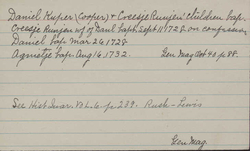 Daniel Kuper (Cooper) & Creesje Runjen' children bap.
Creesje Runjen wf of Danl bapt. Sept 11, 1728 on confession
Daniel bap Mar 26, 1728
Agnietje bap. Aug 16, 1732. Gen Mag. Oct 40, p 88.
See Hist. Quar. Vol. 6-p. 209. Rusk-Lewis
Gen Mag.